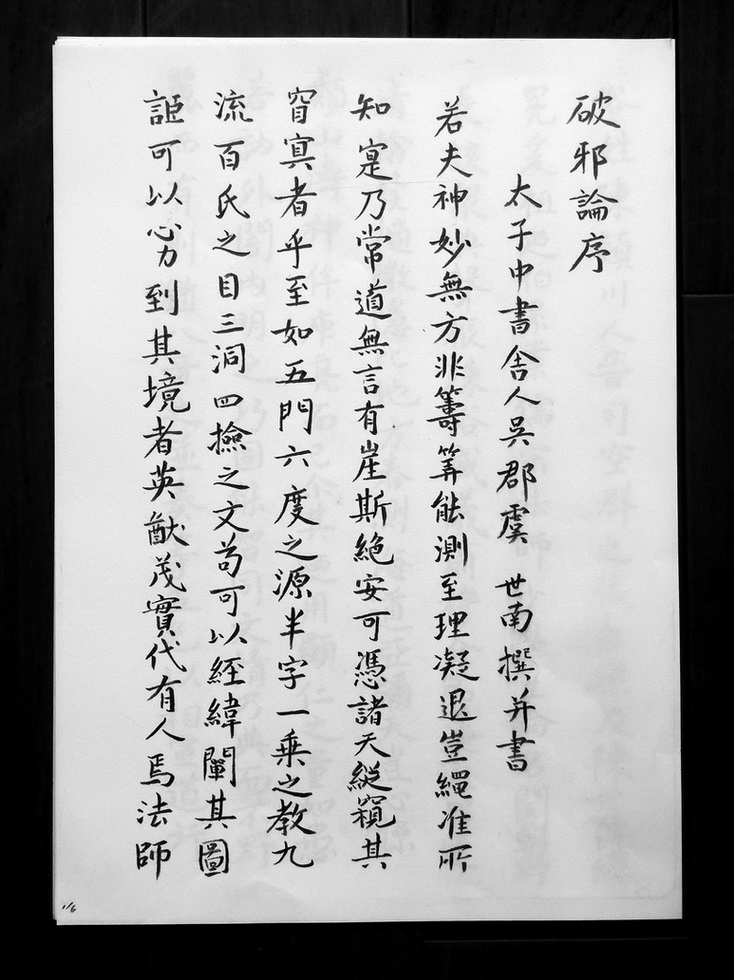 破邪論序
太子中書舍人吳郡虞世南撰并書
若夫神妙無方非籌筭能測至理凝退豈繩准所
知寔乃常道無言有崖斯絶安可憑諸天縱窺其
窅寘者乎至如五門六度之源半字一乗之教九
流百氏之目三洞四撿之文苟可以經緯闡其圖
詎可以心力到其境者英猷茂實代有人焉法師
1/6